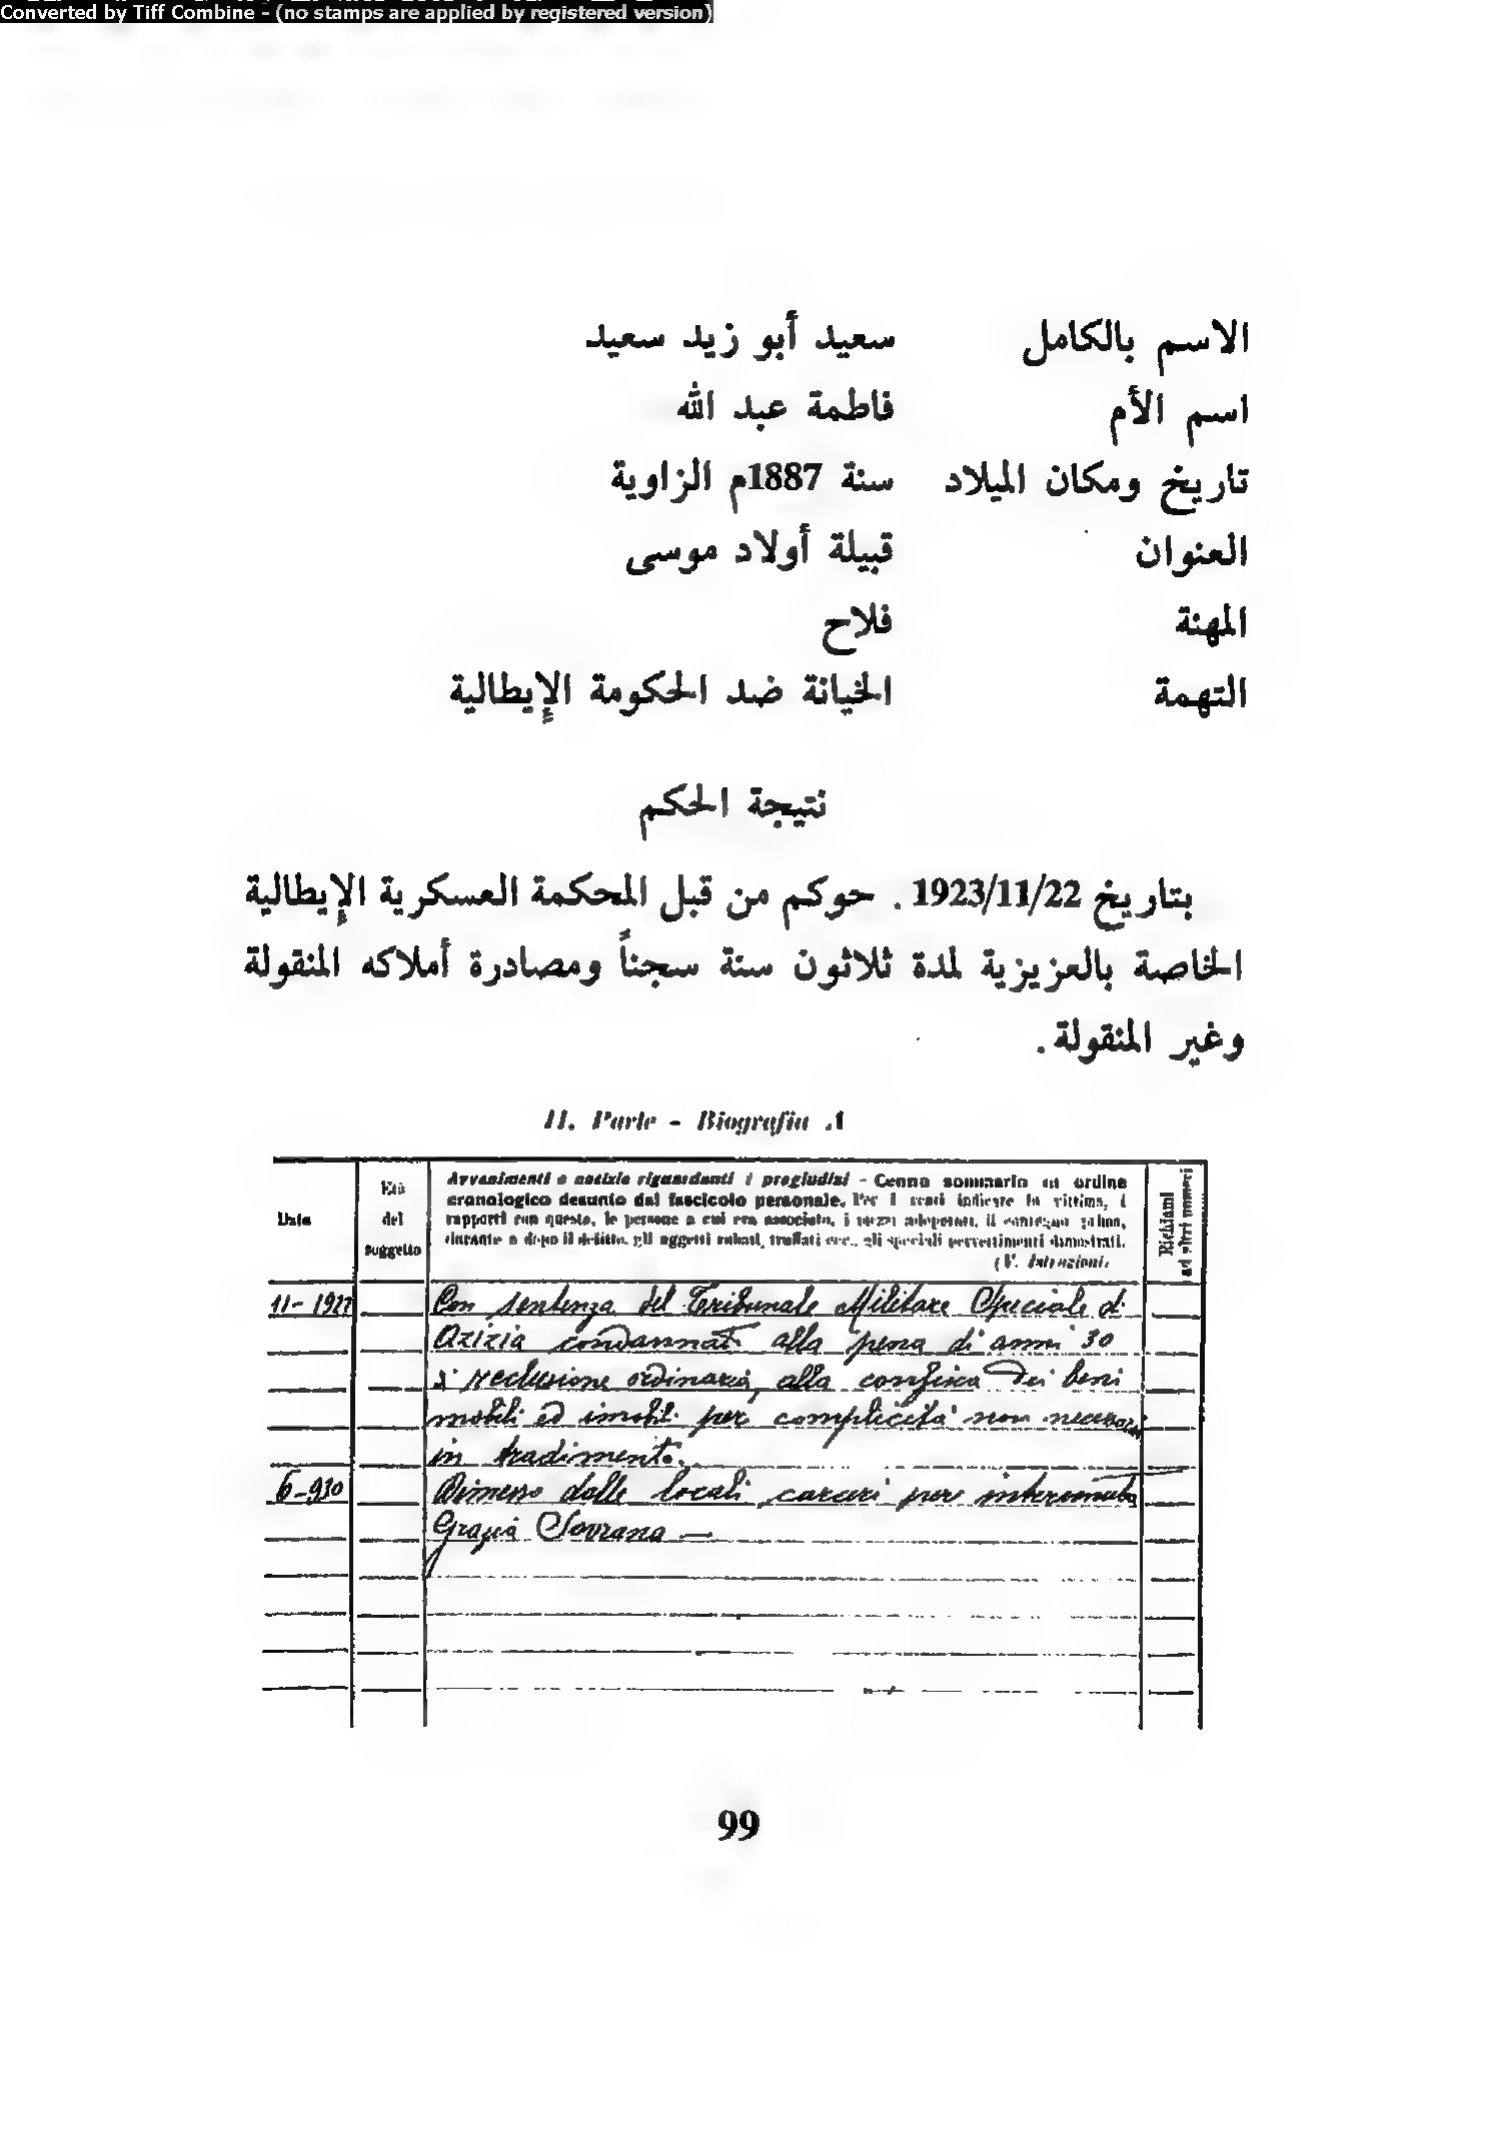 Converted by Tiff Combine - (no stamps are applied by registered version)
الاسم بالكامل سعيد أبو زيد سعيد
اسم الأم فاطمة عبد الله
تاريخ ومكان الميلاد سنة 1887م الزاوية
العنوان قبيلة أولاد موسى
المهنة فلاح
التهمة الخيانة ضد الحكومة الإيطالية
نتيجة الحكم
بتاريخ 1923/11/22 . حوكم من قبل المحكمة العسكرية الإيطالية
الخاصة بالعزيزية لمدة ثلاثون سنة سجناً ومصادرة أملاكه المنقولة
وغير المنقولة .
II. Parte - Biografia A
Data
Età
del
soggetto
Avvenimenti o notizie riguardanti i pregiudizi - Cenno sommario in ordine
cronologico desunto dal fascicolo personale. Per i reati indicare la vittima, i
rapporti con questa, le persone a cui era associato, i mezzi adoperati, il contegno prima,
durante o dopo il delitto, gli oggetti rubati, truffati ecc., gli speciali pervertimenti dimostrati.
(V. Istruzioni.
Richiami
ad altri numeri
11-1927 Con sentenza del Tribunale Militare Speciale di
Azizia condannato alla pena di anni 30
di reclusione ordinaria, alla confisca dei beni
mobili ed imobili per complicità non
in tradimento.
6-930 Dimesso dalle locali carceri per
Grazia Sovrana —
99